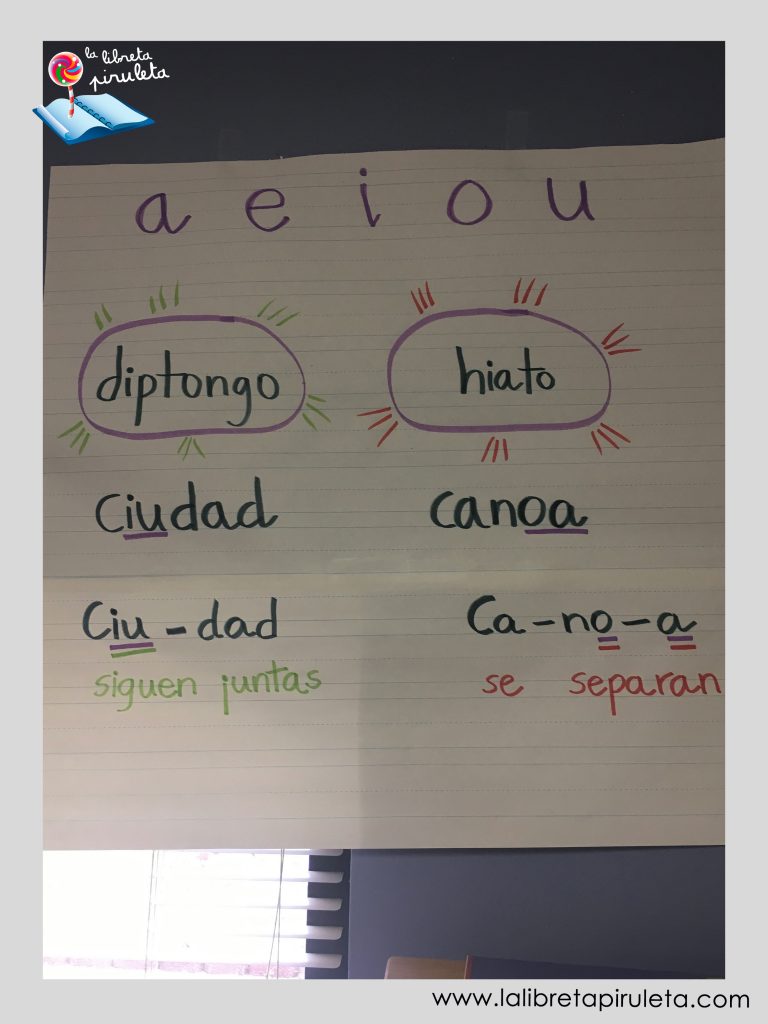 la libreta
piruleta
a e i o u
diptongo hiato
Ciudad canoa
Ciu-dad Ca-no-a
siguen juntas se separan
www.lalibretapiruleta.com